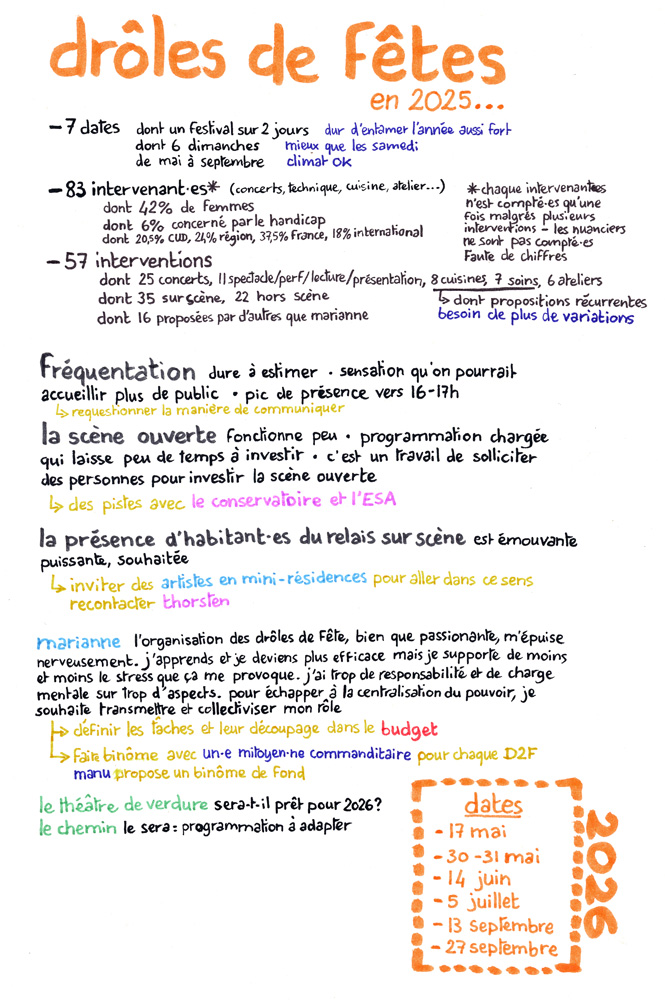 drôles de fêtes
en 2025...
– 7 dates dont un festival sur 2 jours dur d'entamer l'année aussi fort
dont 6 dimanches mieux que les samedi
de mai à septembre climat OK
– 83 intervenant·es* (concerts, technique, cuisine, atelier...)
dont 42% de femmes
dont 6% concerné par le handicap
dont 20,5% CUD, 24% région, 37,5% France, 18% international
* chaque intervenant·es
n'est compté·es qu'une
fois malgrés plusieurs
interventions – les nuanciers
ne sont pas compté·es
faute de chiffres
– 57 interventions
dont 25 concerts, 11 spectacle/perf/lecture/présentation, 8 cuisines, 7 soins, 6 ateliers
dont 35 sur scène, 22 hors scène
dont 16 proposées par d'autres que marianne
↳ dont propositions récurrentes
besoin de plus de variations
fréquentation dure à estimer · sensation qu'on pourrait
accueillir plus de public · pic de présence vers 16-17h
↳ requestionner la manière de communiquer
la scène ouverte fonctionne peu · programmation chargée
qui laisse peu de temps à investir · c'est un travail de solliciter
des personnes pour investir la scène ouverte
↳ des pistes avec le conservatoire et l'ESA
la présence d'habitant·es du relais sur scène est émouvante
puissante, souhaitée
↳ inviter des artistes en mini-résidences pour aller dans ce sens
recontacter thorsten
marianne l'organisation des drôles de fête, bien que passionante, m'épuise
nerveusement. j'apprends et je deviens plus efficace mais je supporte de moins
et moins le stress que ça me provoque. j'ai trop de responsabilité et de charge
mentale sur trop d'aspects. pour échapper à la centralisation du pouvoir, je
souhaite transmettre et collectiviser mon rôle
↳ définir les tâches et leur découpage dans le budget
↳ faire binôme avec un·e mitoyen·ne commanditaire pour chaque D2F
manu propose un binôme de fond
le théâtre de verdure sera-t-il prêt pour 2026?
le chemin le sera : programmation à adapter
dates
- 17 mai
- 30-31 mai
- 14 juin
- 5 juillet
- 13 septembre
- 27 septembre
2026